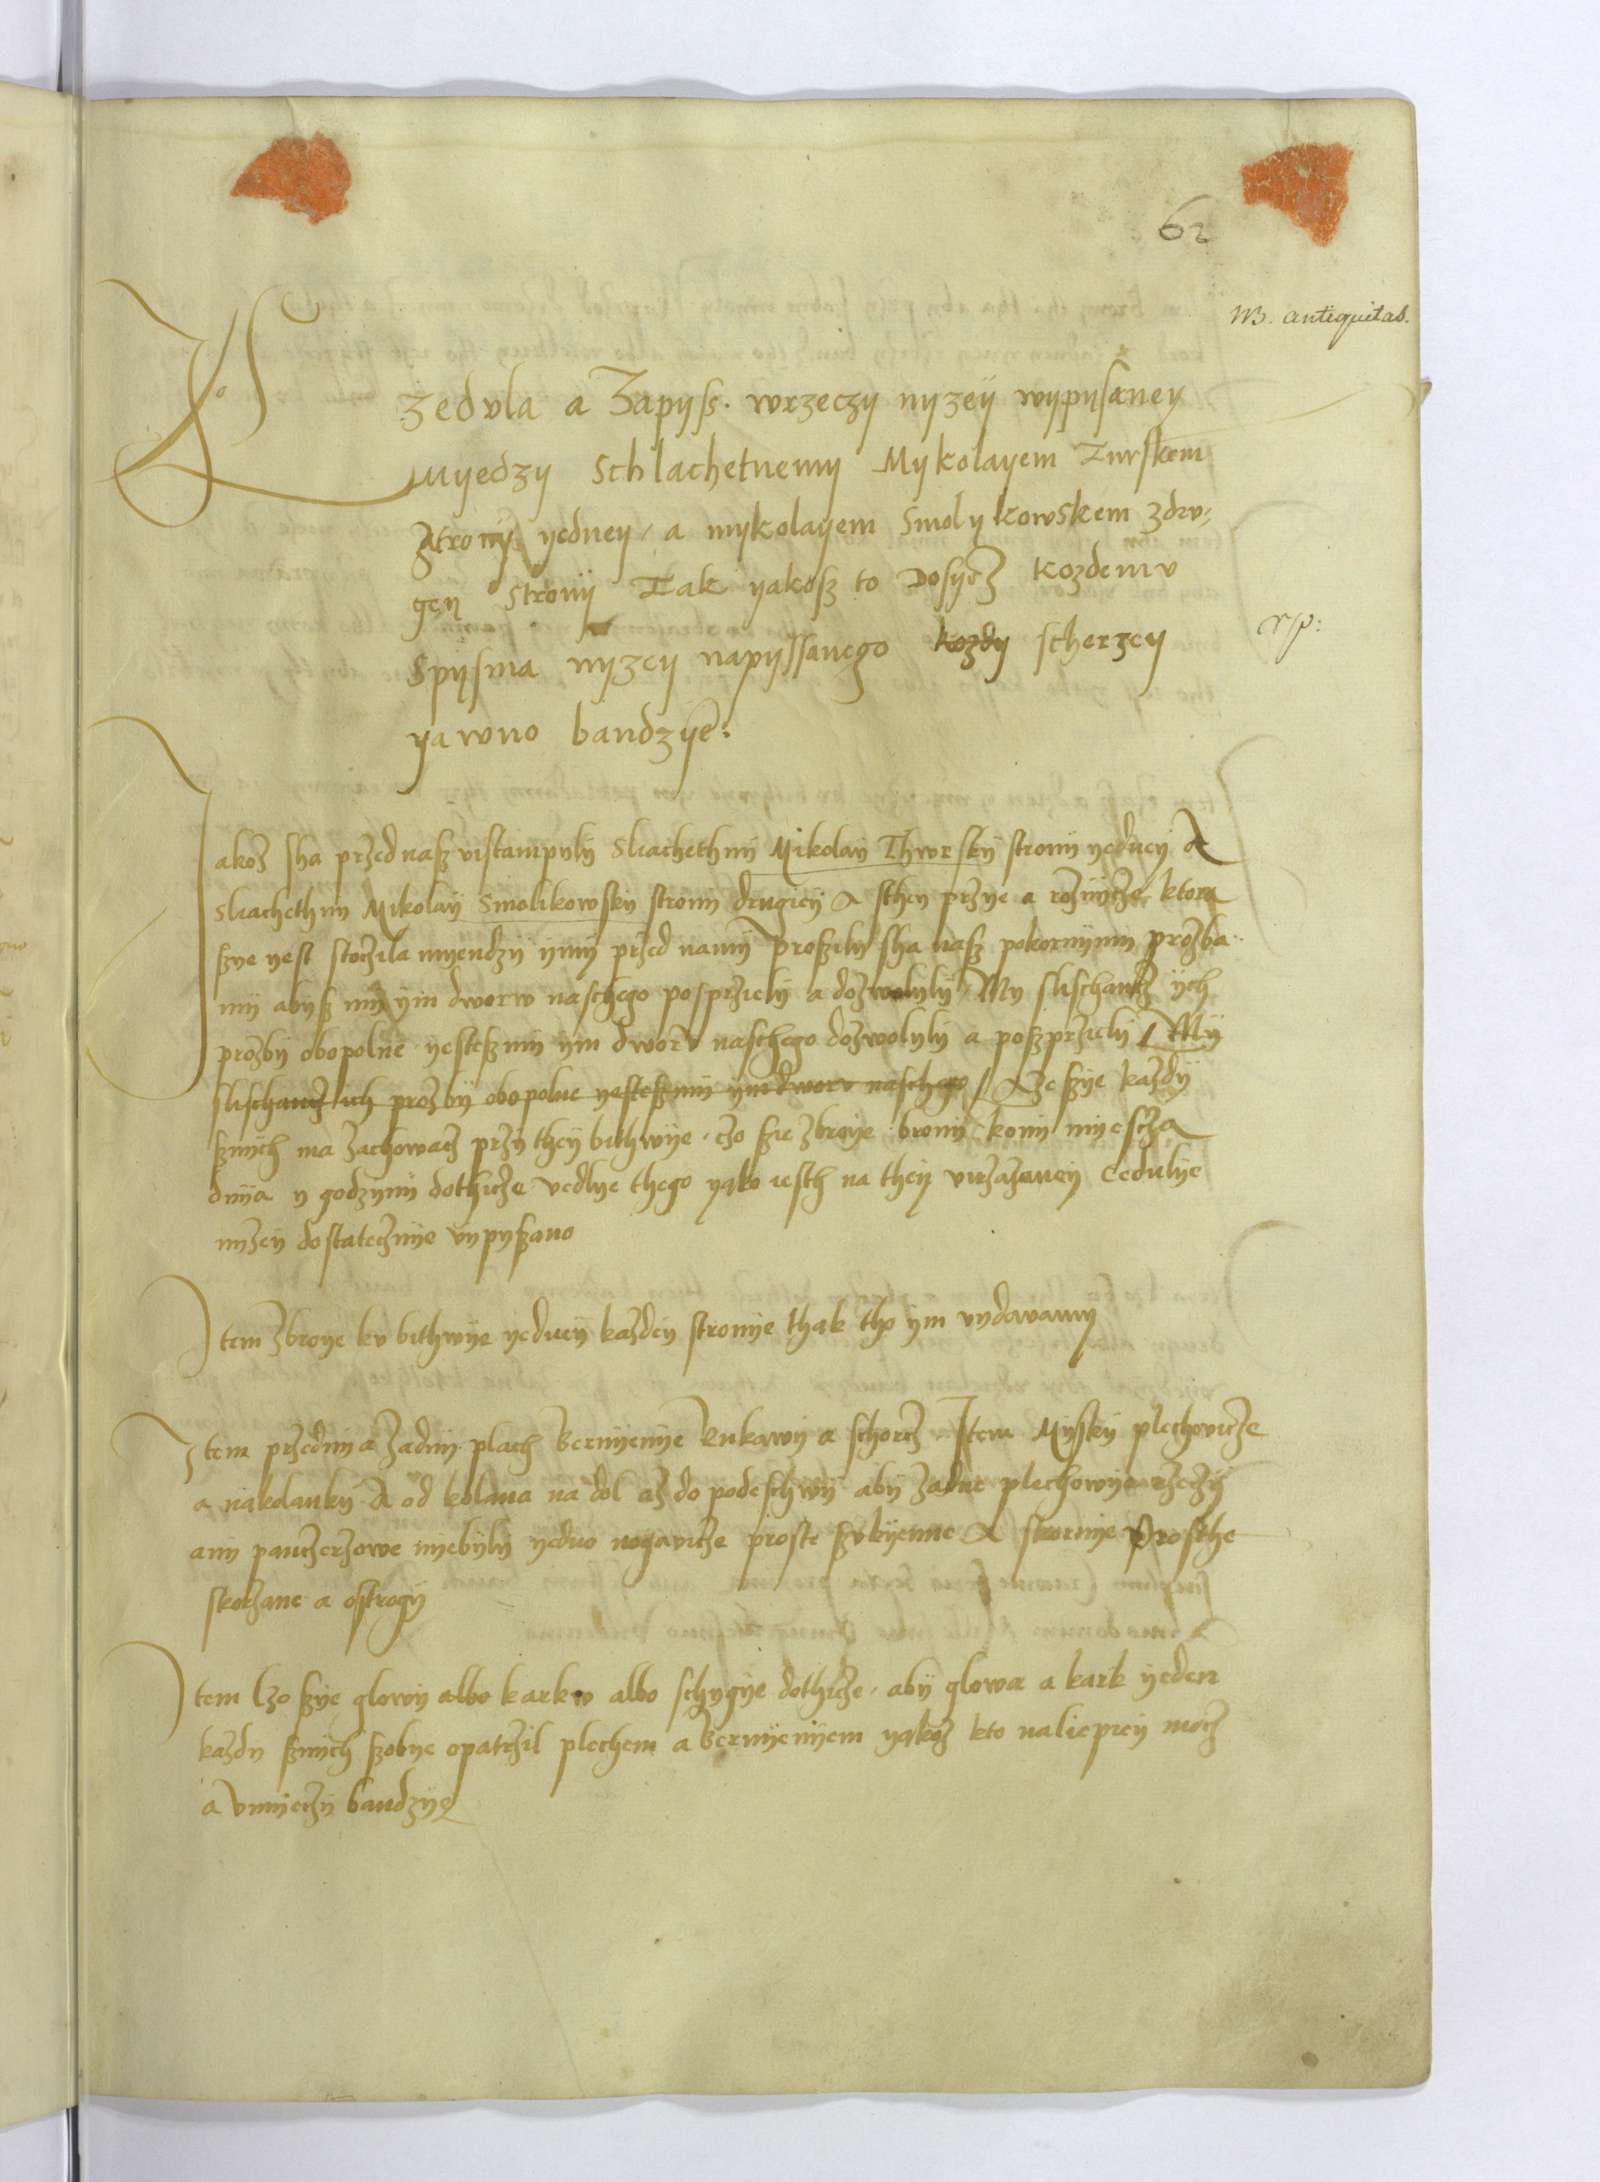 62
NB. antiquitas.
Czedvla a Zapyss. wrzeczy nyzey wypysaney
myedzy Schlachetnemy Mykolayem Turskem
strony yedney, a mykolayem Smolykowskem zdrv-
gey strony Tak yakosz to Dosycz Kozdemv
Spysma nyzey napyssanego kozdy scherzey
yawno bandzye.
Jakoz sha przed nasz vistampyly Sliachethny Mikolay Thwrsky strony yedney A
Sliachethny Mikolay Smolikowsky strony drugiey A sthey przye a roznycze ktora
szye yest stoczila myendzy ymy przed namy Prosily sha nasz pokornymy prozba
my abysz my ym dworw naschego posprziely a dozwolyly My slischancz ych
prozby obopolne yestesmy ym dworv naschego dozwolyly a poszprziely / My
slischancz ich prozby obopolne yestesmy ym dworv naschego / A ze szye kazdy
sznych ma zachowacz przy they bithwye, czo sie zbroye brony kony myescza
dnya y godzyny dothicze vedlye thego yako iesth na they virzazaney Cedulye
nyzey dostatecznye vypyszano
Item zbroye kv bithwye yedney kazdey stronye thak tho ym vydawamy
Item przedny a zadny plach Bernyenye Rukawy a schorcz Item Mysky plechowicze
a nakolanky A od kolana na dol az do podeschwy aby zadne plechowye rzeczy
any panczerzowe nyebyly yedno nogavicze proste szvkyenne A skornye Prosthe
skorzane a ostrogy
Item Czo szye glowy albo karkw albo schygye dothicze, aby glowa a kark yeden
kazdy sznych szobye opatrzil plechem a Bernyenyem yakoz kto naliepiey mocz
a vmyeczy bandzye